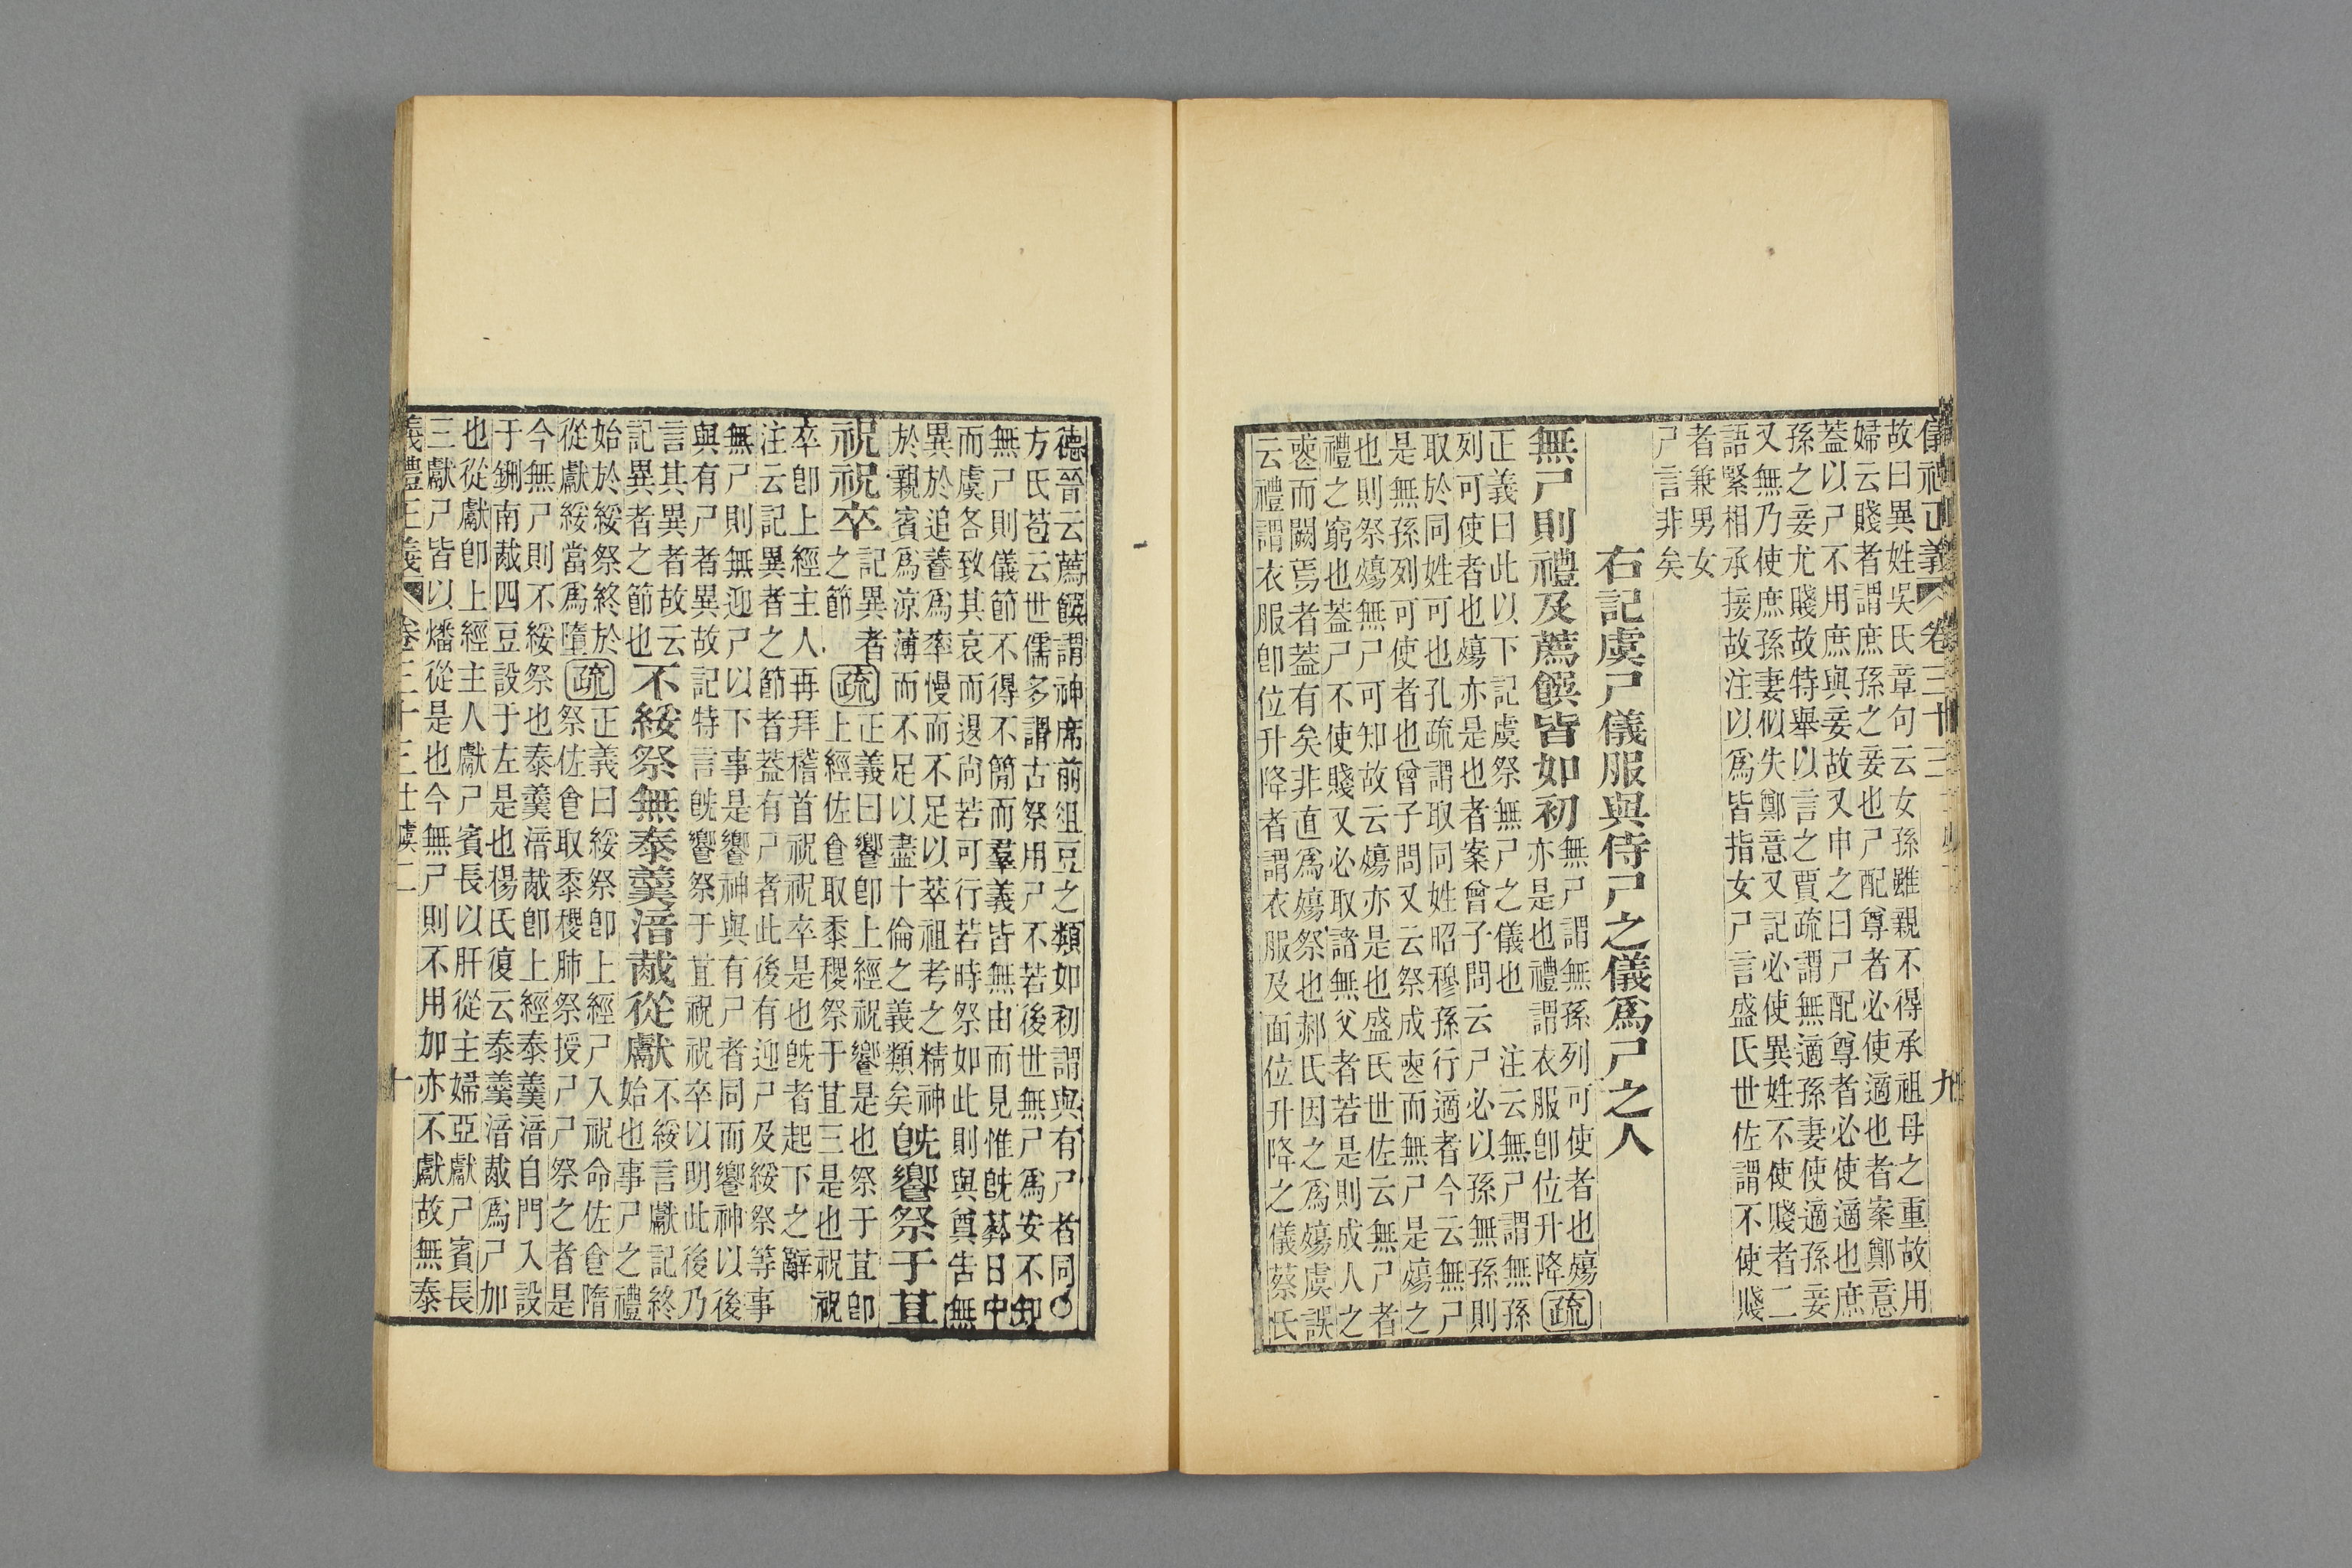 儀禮正義 卷三十三 九
故曰異姓吳氏章句云女孫雖親不得承祖母之重故用
婦云賤者謂庶孫之妾也尸配尊者必使適也者案鄭意
蓋以尸不用庶與妾故又申之曰尸配尊者必使適也庶
孫之妾尤賤故特舉以言之賈疏謂無適孫妻使適孫妾
又無乃使庶孫妻似失鄭意又記必使異姓不使賤者二
語緊相承接故注以爲皆指女尸言盛氏世佐謂不使賤
者兼男女
尸言非矣
右記虞尸儀服與侍尸之儀爲尸之人
無尸則禮及薦饌皆如初
無尸謂無孫列可使者也殤
亦是也禮謂衣服卽位升降
疏
正義曰此以下記虞祭無尸之儀也 注云無尸謂無孫
列可使者也殤亦是也者案曾子問云尸必以孫無孫則
取於同姓可也孔疏謂取同姓昭穆孫行適者今云無尸
是無孫列可使者也曾子問又云祭成喪而無尸是殤之
也則祭殤無尸可知故云殤亦是也盛氏世佐云無尸者
禮之窮也蓋尸不使賤又必取諸無父者若是則成人之
喪而闕焉者蓋有矣非直爲殤祭也郝氏因之爲殤虞誤
云禮謂衣服卽位升降者謂衣服及面位升降之儀蔡氏
德晉云薦饌謂神席前俎豆之類如初謂與有尸者同○
方氏苞云世儒多謂古祭用尸不若後世無尸爲安不知
無尸則儀節不得不簡而羣義皆無由而見惟旣葬日中
而虞各致其哀而退尚若可行若時祭如此則與奠告無
異於追養爲率慢而不足以萃祖考之精神
於親賓爲涼薄而不足以盡十倫之義類矣
旣饗祭于苴
祝祝卒
記異者
之節
疏
正義曰饗卽上經祝饗是也祭于苴卽
上經佐食取黍稷祭于苴三是也祝祝
卒卽上經主人再拜稽首祝祝卒是也旣者起下之辭
注云記異者之節者蓋有尸者此後有迎尸及綏祭等事
無尸則無迎尸以下事是饗神與有尸者同而饗神以後
與有尸者異故記特言旣饗祭于苴祝祝卒以明此後乃
言其異者故云
記異者之節也
不綏祭無泰羹湆胾從獻
不綏言獻記終
始也事尸之禮
始於綏祭終於
從獻綏當爲墮
疏
正義曰綏祭卽上經尸入祝命佐食隋
祭佐食取黍稷肺祭授尸尸祭之者是
今無尸則不綏祭也泰羹湆胾卽上經泰羹湆自門入設
于鉶南胾四豆設于左是也楊氏復云泰羹湆胾爲尸加
也從獻卽上經主人獻尸賓長以肝從主婦亞獻尸賓長
三獻尸皆以燔從是也今無尸則不用加亦不獻故無泰
義禮正義 卷三十三 士虞二 十